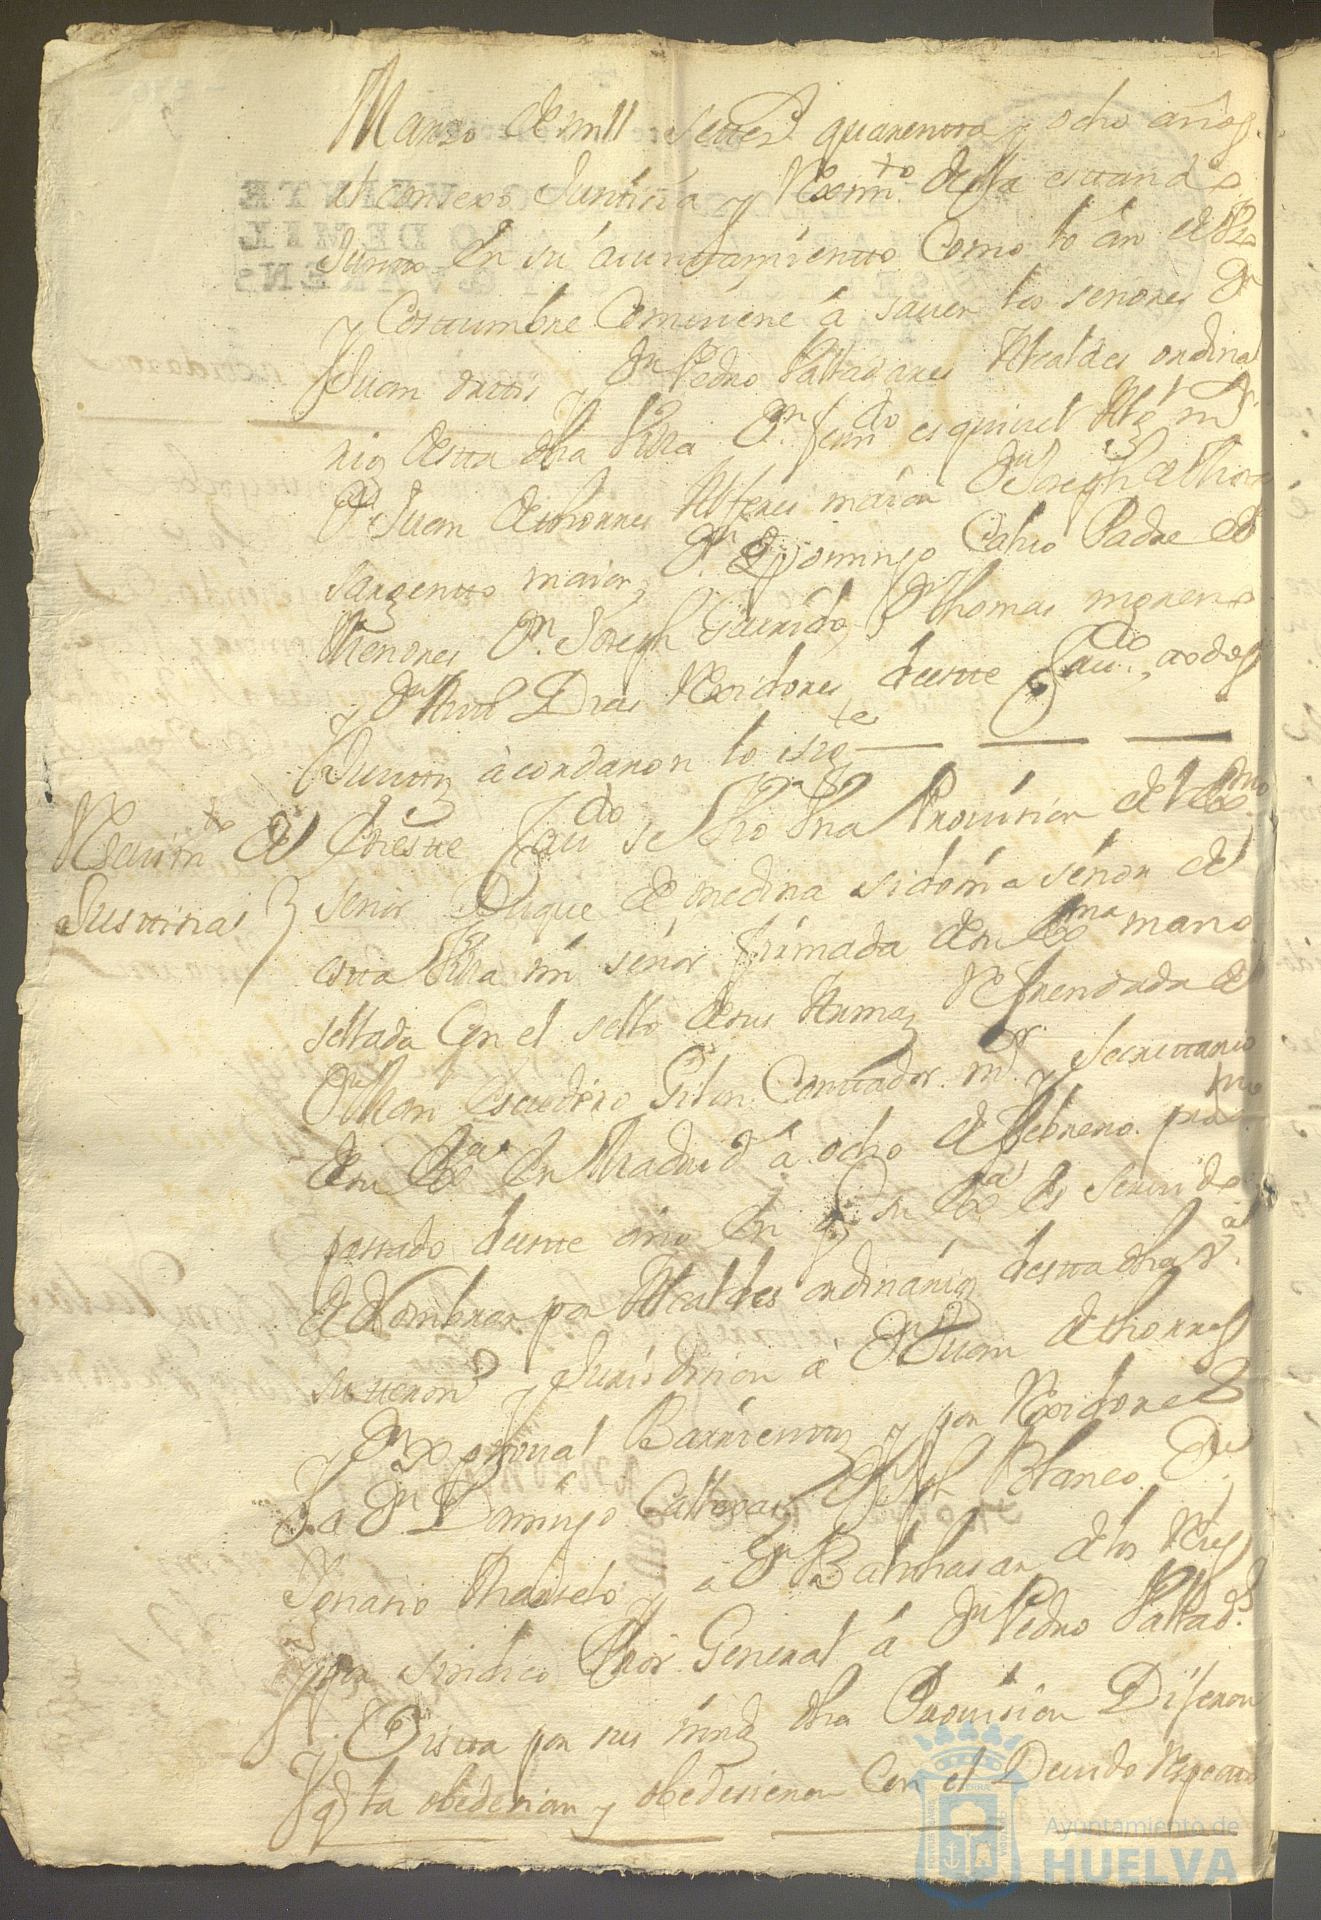 Marzo de mill settez.s quarentta y ocho años
el consexo Justicia y Rexim.to della estando
Junto En su aiunttamientto Como lo án de Vzo
y Costtumbre Comviene á saver los señores Dn
Juan y Dn Pedro Valladares Alcaldes ordina
rios desta dha Villa Dn fern.do esquivel Alg.l m.r
Dn Juan dethorres Alferes maior Dn Joseph de
sargentto maior Dn Domingo Calvo Padre de
Menores Dn Joseph Garrido Dn thomas moreno
y Dn Dias Rexidores deeste Cau.do todos
Junttos acordaron lo sig.te
Reciuim.to de
Justicias
En este Cau.do se Vio Vna Provision del Ex.mo
señor Duque de medina sidonia señor de
esta Villa mi señor firmada de su Ex.ma mano
sellada Con el sello de sus Armas Refrendada de
Dn Escudero Gilon Conttador m.or y Secrettario
de su Ex.a En Madrid á ocho de febrero prox.mo
passado deeste año En q su Ex.a es servido
de Nombrar por Alcaldes ordinarios desta dha V.a
su termino y Jurisdicion á Dn Juan dethorres
y Dn Xptoval Barrientos y por Rexidores
a Dn Domingo Dn Jph Blanco Dn
Ignasio y a Dn Balthasar delos Reyes
y por sindico Pror General á Dn Pedro Vallad.s
y Vistta por sus mrds dha Provision Dixeron
q la obedesian y obedesieron Con el Deuido Respecto
Ayuntamiento de
HUELVA